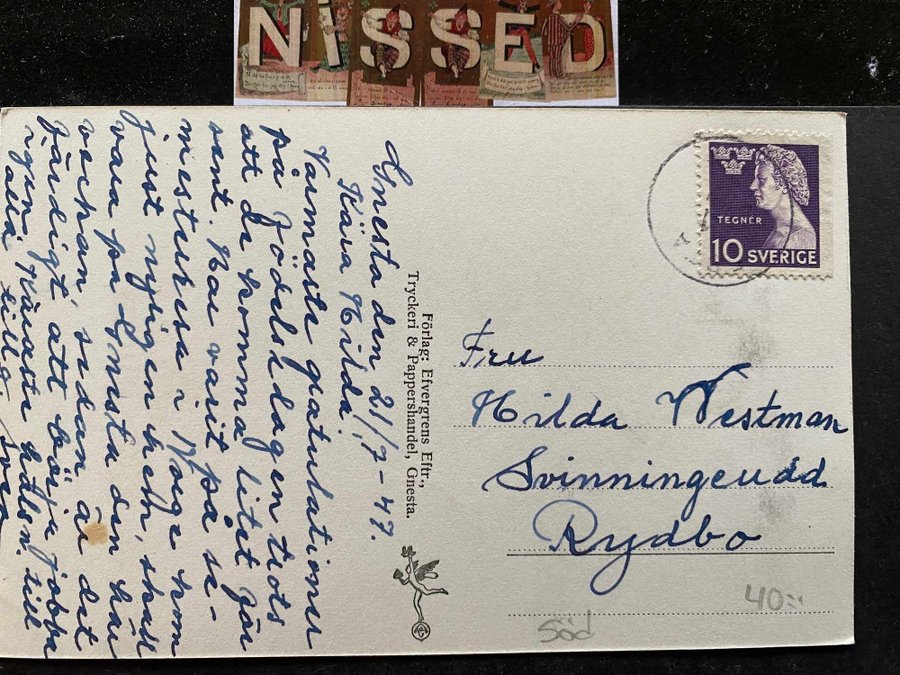 NISSED
Gnesta den 21/7-47.
Kära Hilda!
Varmaste gratulationer
på födelsdagen trots
att de komma litet för
sent. Har varit på se-
mesterresa i Norge kom
just nyligen hem, skall
vara på Gnesta den här
veckan, sedan är det
färdigt, att börja jobba
igen. Käraste hälsn. till
alla
Förlag: Efvergrens Eftr.,
Tryckeri & Pappershandel, Gnesta.
TEGNÉR
10 SVERIGE
Fru
Hilda Westman
Svinningeudd
Rydbo
40:-
Söd